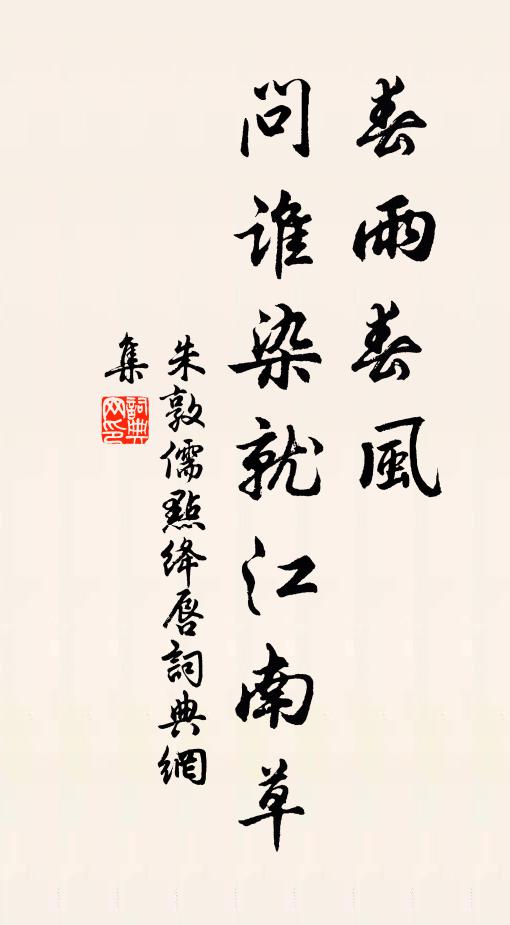 春雨春風
問誰染就江南草
朱敦儒點绛唇詞典網
集
詞典
网印